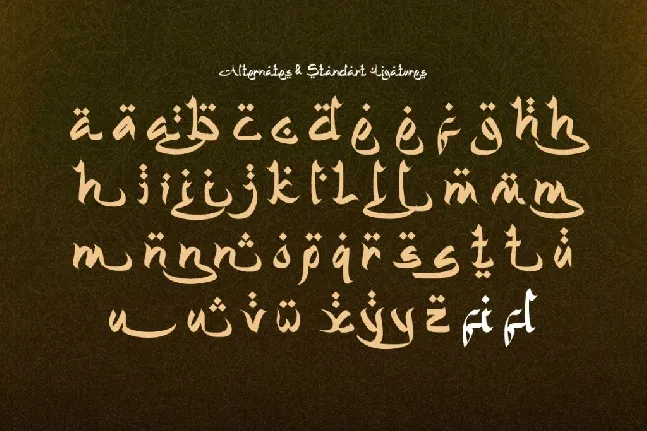 Alternates & Standart Ligatures
a a a b c c d e e f g h h
h i i i i j k l l l l m m m
m n n n o p q r s s t t u
u u v w x y y z fi fl